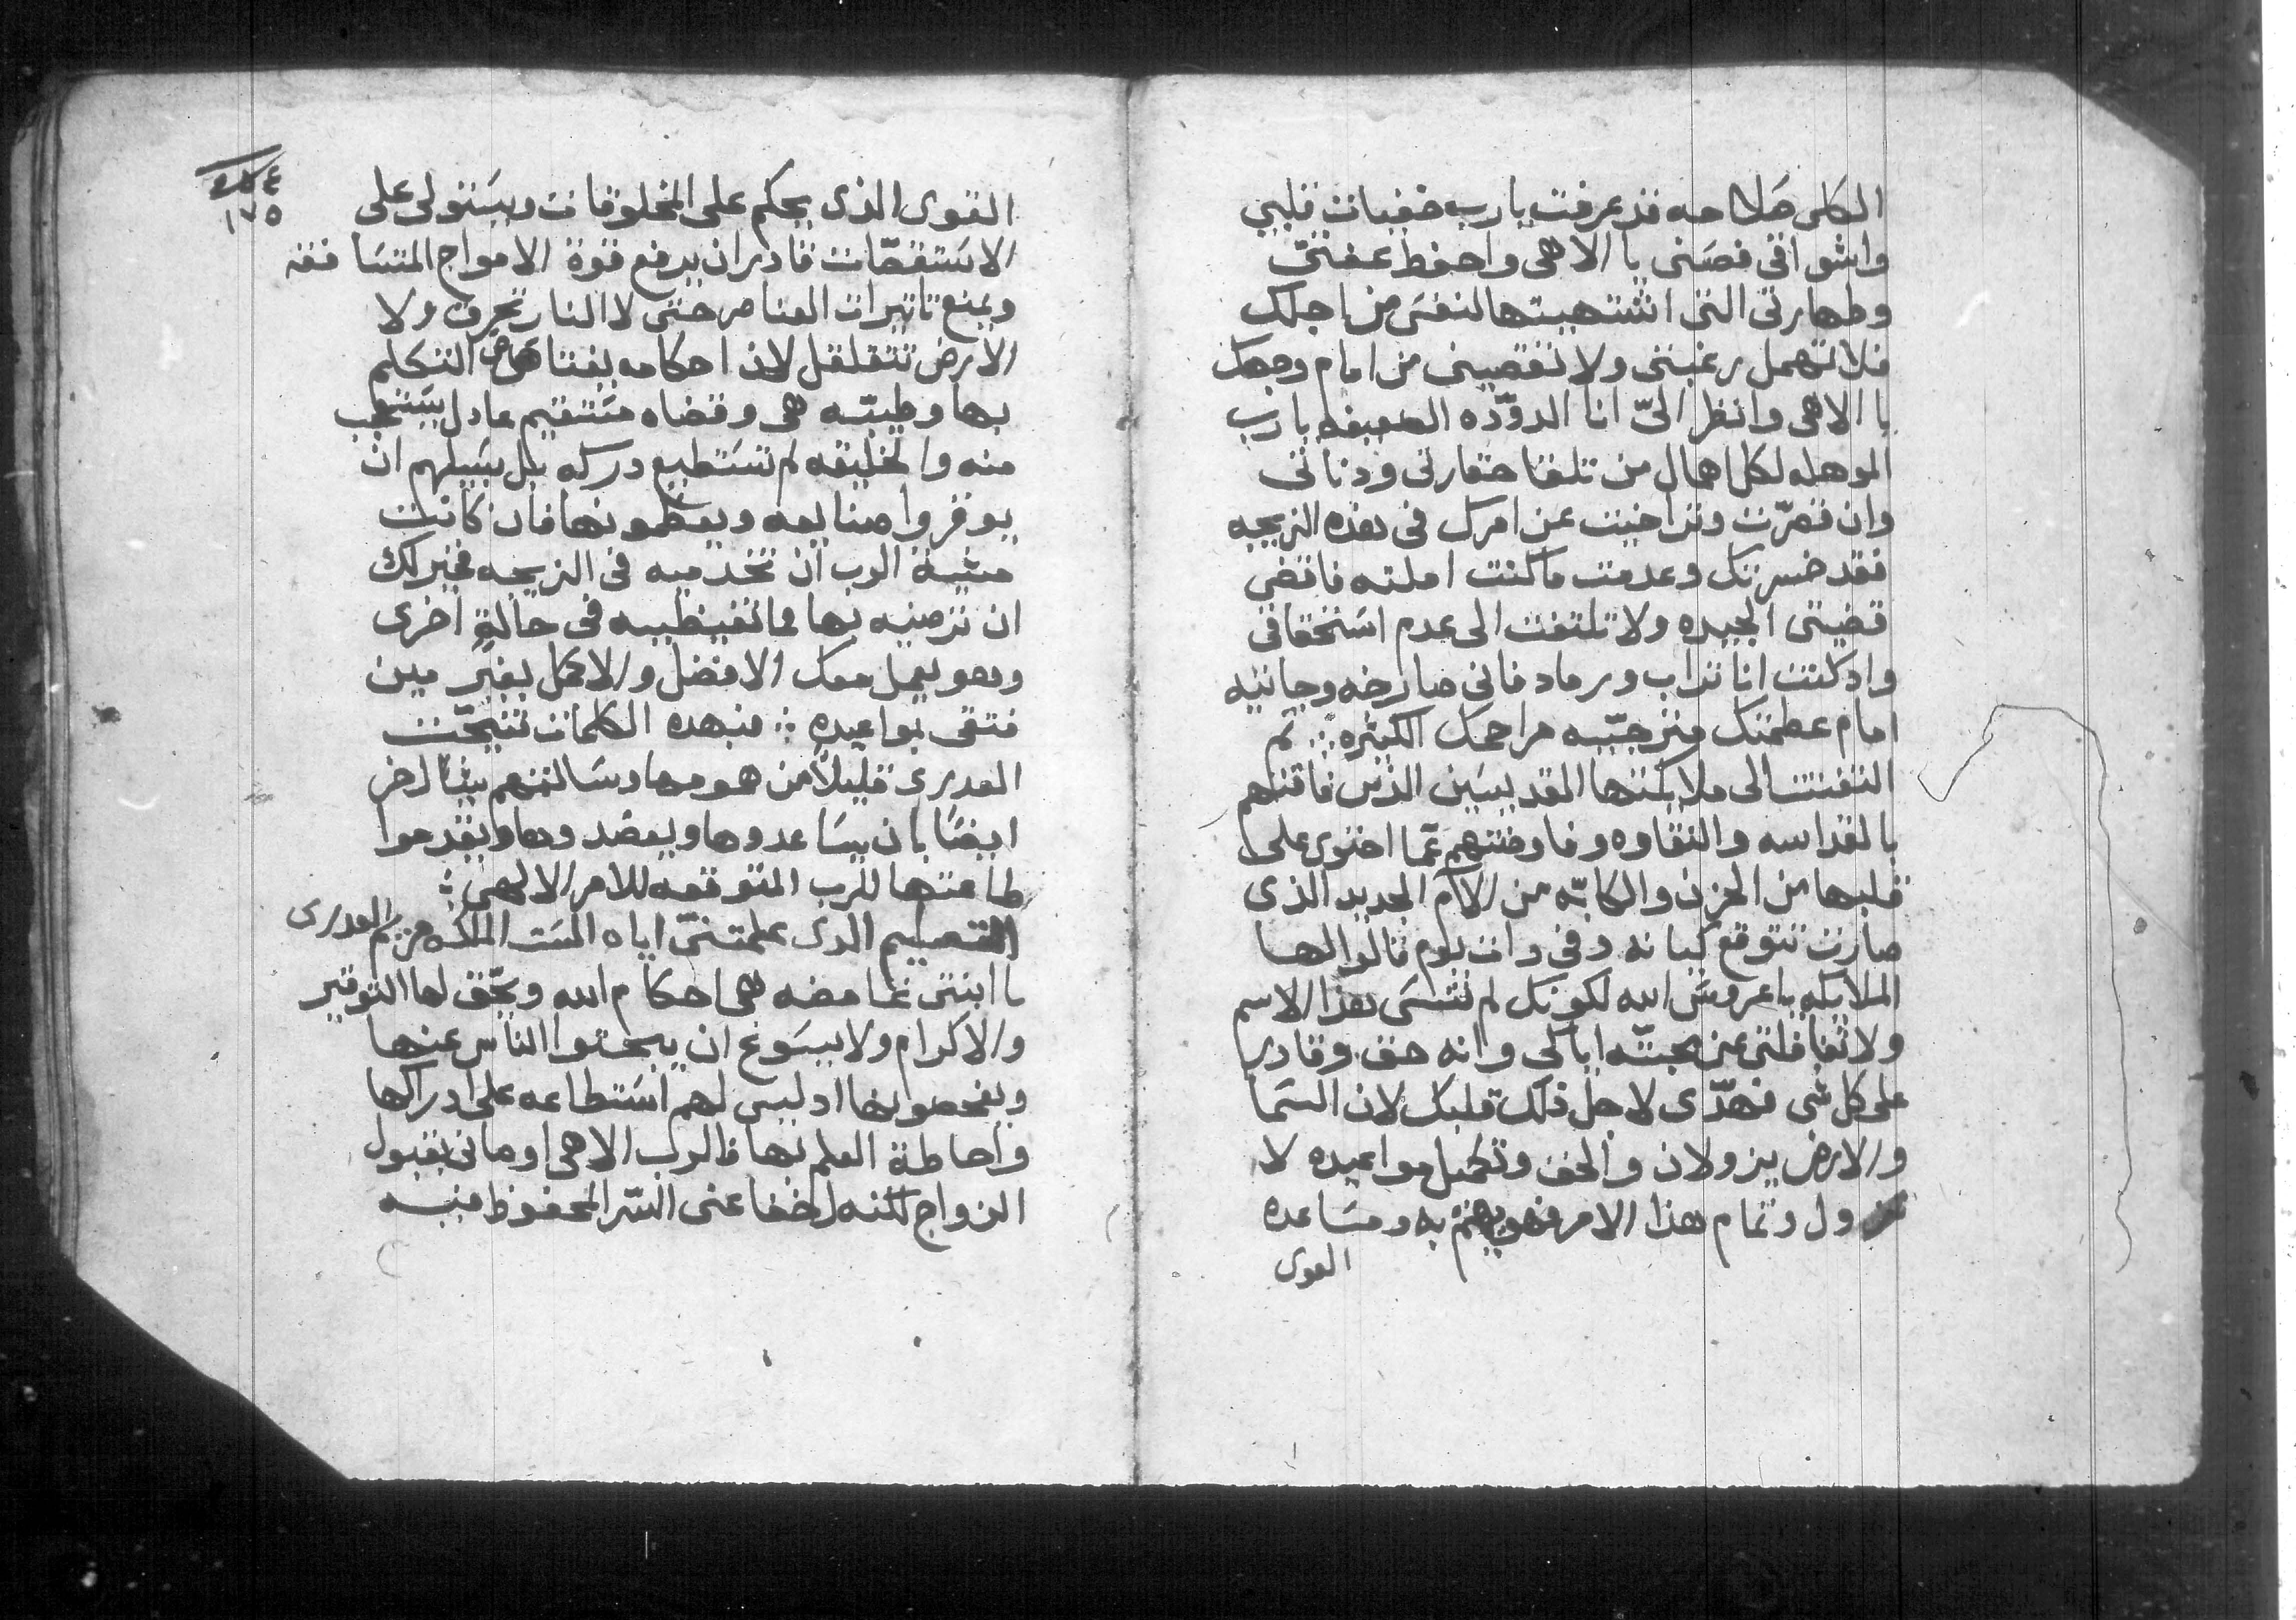 الكلى صلاحه قد عرفت يا رب خفيات قلبي
واشواقى فصنى يا الاهى واحفظ عفتى
وطهارتى التى اشتهيتها لنفسى من اجلك
فلا تهمل رغبتى ولا تقصينى من امام وجهك
يا الاهى وانظر الىّ انا الدوّده الضعيفه يا رب
الموهله لكل اهمال من تلقا حقارتى ودناتى
وان قصرّت وتراخيت عن امرك فى هذه الزيجه
فقد خسرتك وعدمت ما كنت املته فاقضى
قضيتى الجيده ولا تلتفت الى عدم استحقاقى
واد كنت انا تراب ورماد فانى صارخه وجاثيه
امام عظمتك ومترجيّه مراحمك الكثيره ∴ ثم
التفتت الى ملايكتها القديسين الذين فاقتهم
بالقداسه والنقاوه وفاوضتهم عمّا احتوى على
قلبها من الحزن والكابه من الالام الجديد الذى
صارت تتوقع كيانه وفى دات يوم قالوا لها
الملايكه يا عروس الله لكونك لم تنسى هذا الاسم
ولا تغافلتى عن محبتّه اياكى وانه حق وقادر
على كل شى فهدّى لاجل ذلك قلبك لان السما
والارض يزولان والحق وتكميل مواعيده لا
تزول وتمام هذا الامر فهو يهتم به ومساعده
القوى
١٧٥
القوى الذى يحكم على المخلوقات ويستولى على
الاستقصّات قادر ان يدفع قوة الامواج المتسافقه
ويمنع تاتيرات العناصر حتى لا النار تحرق ولا
الارض تتقلقل لان احكامه يفتاهى من التكلم
بها وطيبّه هى وقضاه مستقيم عادل يستعجب
منه والخليقه لم تستطيع دركه بل سبيلهم ان
يوقروا صنايعه ويعظمونها فان كانت
مشية الرب ان تخدميه فى الزيجه فخير لك
ان ترضيه بها مما تغيظيه فى حالةٍ اخرى
وهو يعمل معك الافضل والاكمل بغير مين
فتقى بمواعيده ∴ فبهده الكلمات تنيحّت
العدرى قليلاً من همومها وسالتهم شياً اخر
ايضًا بان يساعدوها ويعضدوها ويقدموا
طاعتها للرب المتوقعه للامر الالهى ∴
التعليم الدى علمتنىّ اياه الست الملكه مريم العدرى
يا ابنتى غامضه هى احكام الله ويحّق لها التوقير
والاكرام ولا يسوغ ان يبحتوا الناس عنها
ويفحصونها اد ليس لهم استطاعه على ادراكها
واحاطة العلم بها فالرب الاهى اوصانى بقبول
الزواج لكنه اخفا عنى السّر المحفوظ فيه